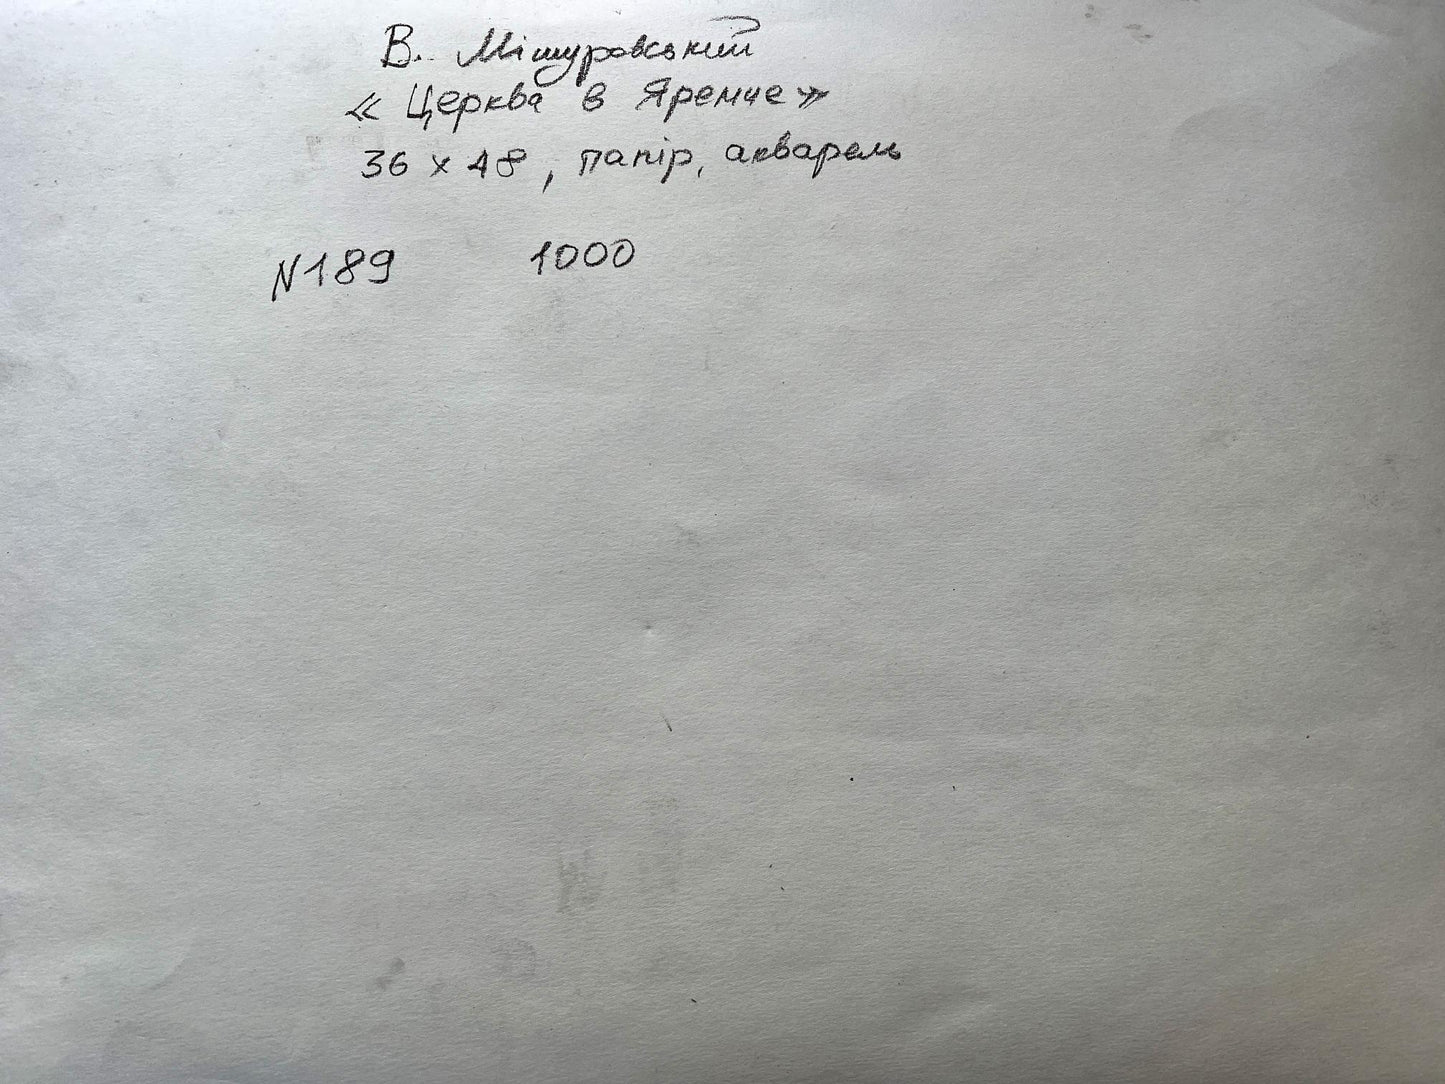 В. Мішуровський
« Церква в Яремче »
36 x 48, папір, акварель
N 189 1000